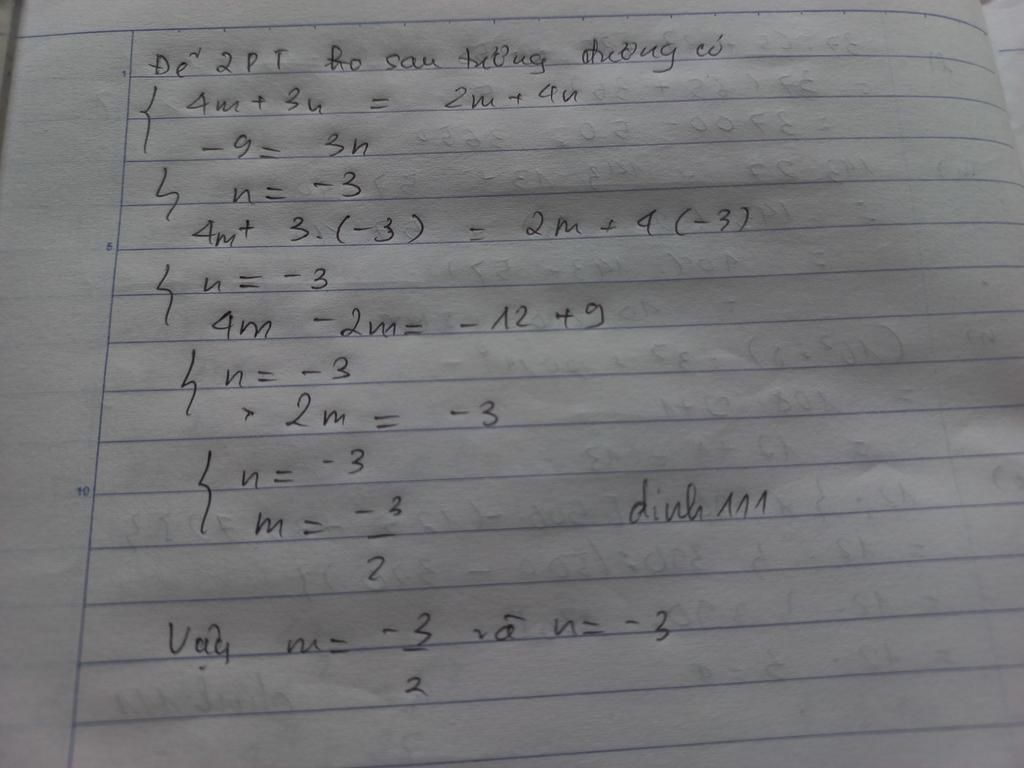 Để 2 PT sau tương đương có
4m + 3n = 2m + 4n
-9 = 3n
n = -3
4m + 3.(-3) = 2m + 4(-3)
n = -3
4m - 2m = -12 + 9
n = -3
2m = -3
n = -3
m = -3/2
dinh 111
Vậy m = -3/2 và n = -3